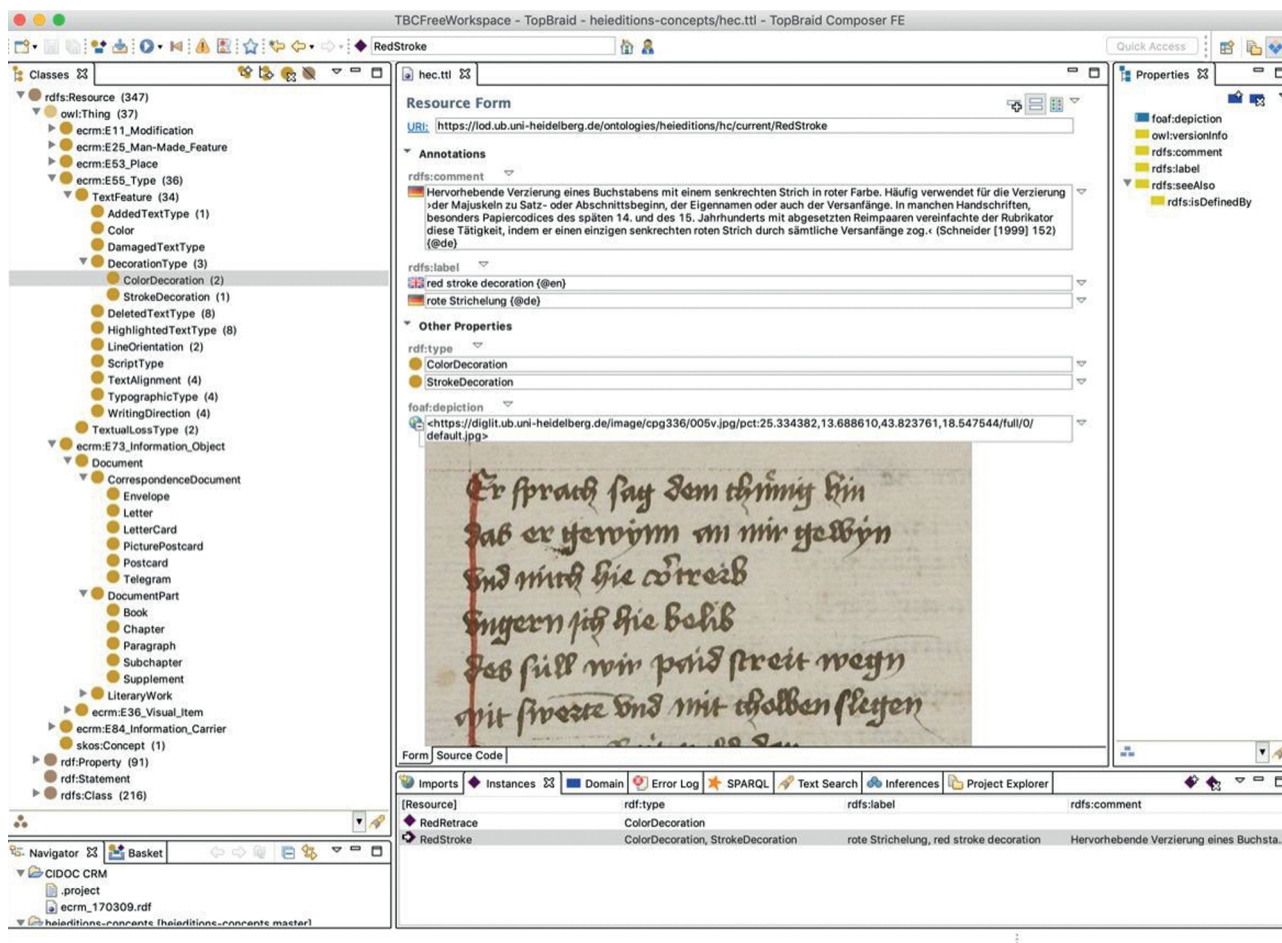 TBCFreeWorkspace - TopBraid - heieditions-concepts/hec.ttl - TopBraid Composer FE
RedStroke
Quick Access
Classes
rdfs:Resource (347)
owl:Thing (37)
ecrm:E11_Modification
ecrm:E25_Man-Made_Feature
ecrm:E53_Place
ecrm:E55_Type (36)
TextFeature (34)
AddedTextType (1)
Color
DamagedTextType
DecorationType (3)
ColorDecoration (2)
StrokeDecoration (1)
DeletedTextType (8)
HighlightedTextType (8)
LineOrientation (2)
ScriptType
TextAlignment (4)
TypographicType (4)
WritingDirection (4)
TextualLossType (2)
ecrm:E73_Information_Object
Document
CorrespondenceDocument
Envelope
Letter
LetterCard
PicturePostcard
Postcard
Telegram
DocumentPart
Book
Chapter
Paragraph
Subchapter
Supplement
LiteraryWork
ecrm:E36_Visual_Item
ecrm:E84_Information_Carrier
skos:Concept (1)
rdf:Property (91)
rdf:Statement
rdfs:Class (216)
Navigator
Basket
CIDOC CRM
.project
ecrm_170309.rdf
heieditions-concepts [heieditions-concepts master]
hec.ttl
Resource Form
URI: https://lod.ub.uni-heidelberg.de/ontologies/heieditions/hc/current/RedStroke
Annotations
rdfs:comment
Hervorhebende Verzierung eines Buchstabens mit einem senkrechten Strich in roter Farbe. Häufig verwendet für die Verzierung
›der Majuskeln zu Satz- oder Abschnittsbeginn, der Eigennamen oder auch der Versanfänge. In manchen Handschriften,
besonders Papiercodices des späten 14. und des 15. Jahrhunderts mit abgesetzten Reimpaaren vereinfachte der Rubrikator
diese Tätigkeit, indem er einen einzigen senkrechten roten Strich durch sämtliche Versanfänge zog.‹ (Schneider [1999] 152)
{@de}
rdfs:label
red stroke decoration {@en}
rote Strichelung {@de}
Other Properties
rdf:type
ColorDecoration
StrokeDecoration
foaf:depiction
<https://diglit.ub.uni-heidelberg.de/image/cpg336/005v.jpg/pct:25.334382,13.688610,43.823761,18.547544/full/0/
default.jpg>
Er sprach sag dem
das er gewynn an mir gewyn
vnd mich hie
vngern ich hie belib
des süll wir paid streit wegn
mit swerte vnd mit cholben slegen
Form
Source Code
Properties
foaf:depiction
owl:versionInfo
rdfs:comment
rdfs:label
rdfs:seeAlso
rdfs:isDefinedBy
Imports
Instances
Domain
Error Log
SPARQL
Text Search
Inferences
Project Explorer
[Resource] rdf:type rdfs:label rdfs:comment
RedRetrace ColorDecoration
RedStroke ColorDecoration, StrokeDecoration rote Strichelung, red stroke decoration Hervorhebende Verzierung eines Buchsta...